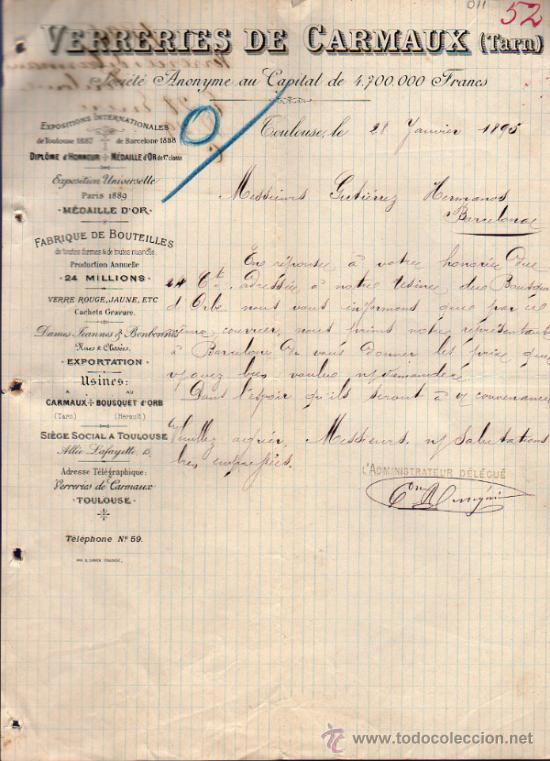 011
52
VERRERIES DE CARMAUX (Tarn)
Société Anonyme au Capital de 4.700.000 Francs
Toulouse, le 28 Janvier 1895
EXPOSITIONS INTERNATIONALES
de Toulouse 1887 de Barcelone 1888
DIPLÔME d'HONNEUR MÉDAILLE D'OR de 1re classe
Exposition Universelle
PARIS 1889
MÉDAILLE D'OR
FABRIQUE DE BOUTEILLES
de toutes formes & de toutes nuances
Production Annuelle
24 MILLIONS
VERRE ROUGE, JAUNE, ETC
Cachets Gravure.
Dames Jeannes & Bonbonnes
Nues & Clissées.
EXPORTATION
USINES:
A A
CARMAUX BOUSQUET D'ORB
(Tarn) (Herault)
SIÈGE SOCIAL A TOULOUSE
Allée Lafayette, 15,
Adresse Télégraphique:
Verreries de Carmaux
TOULOUSE
Téléphone No 59.
Messieurs Gutiérrez Hermanos
Barcelone
En réponse à votre honorée du
24 Ct. adressée à notre Usine du Bousquet
d'Orb, nous vous informons que par ce
même courrier, nous prions notre représentant
à Barcelone de vous donner les prix que
v/ avez bien voulu n/ demander.
Dans l'espoir qu'ils seront à v/ convenance
Veuillez agréer, Messieurs, n/ salutations
bien empressées.
L'ADMINISTRATEUR DÉLÉGUÉ
www.todocoleccion.net